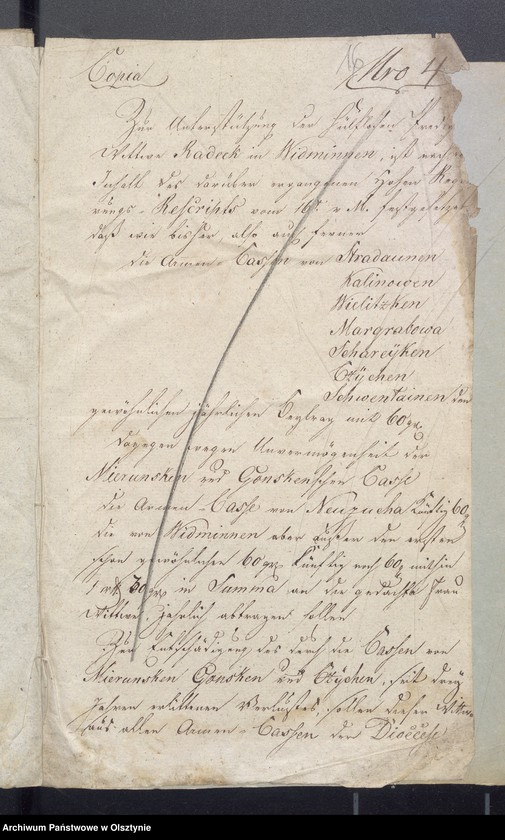 Copia 16 Nro 4
Zur Unterstützung der hülflosen Predig
Wittwe Radeck in Widminnen, ist nach
Inhalt des darüber ergangenen hohen Regie
rungs-Rescripts vom 16t. v. M. festgesetzt
daß wie bisher, also auch ferner
die Armen-Cassen von Stradaunen
Kalinowen
Wielitzken
Margrabowa
Schareyken
Czychen
Schwentainen den
gewöhnlichen jährlichen Beytrag mit 60 gr.
dagegen wegen Unvermögenheit der
Mierunsken und Gonskenschen Casse
die Armen-Casse von Neuzucha künftig 60
die von Widminnen aber außer den ersten
schon gewöhnlichen 60 gr. künftig noch 60 mithin
1 rtl 30 gr. in Summa an die gedachte Frau
Wittwe, jährlich abtragen sollen
Zur Entschädigung des durch die Cassen von
Mierunsken Gonsken und Czychen, seit drey
Jahren erlittenen Verlustes, sollen dieser Wittwe
aus allen Armen-Cassen der Dioecese
Archiwum Państwowe w Olsztynie